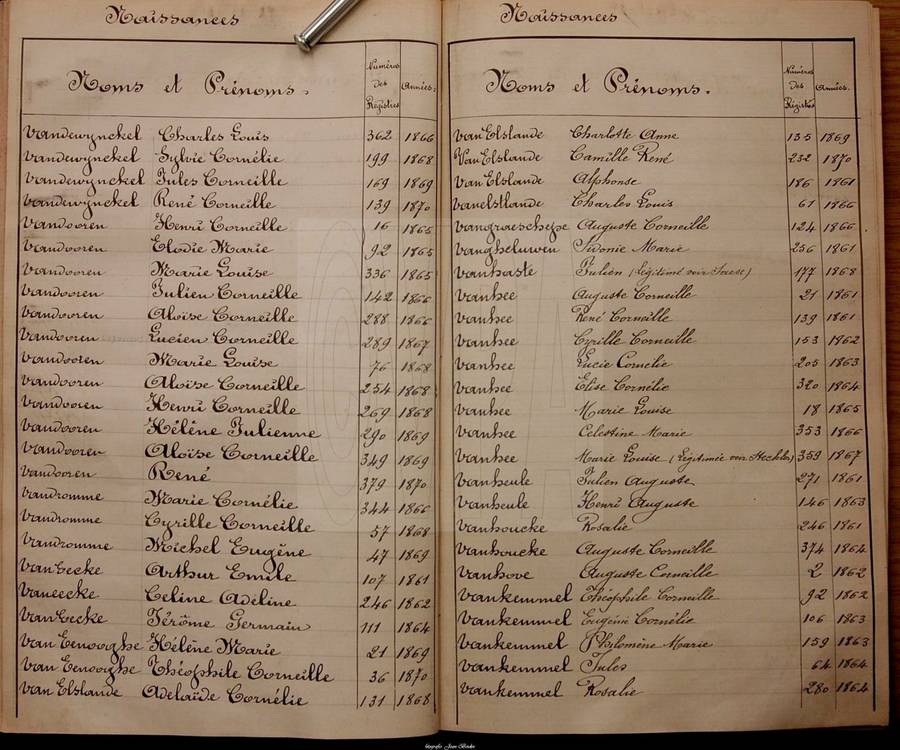 Naissances
Noms et Prénoms. Numéros des Registres Années.
Vandewynckel Charles Louis 362 1866
Vandewynckel Sylvie Cornélie 199 1868
Vandewynckel Jules Corneille 169 1869
Vandewynckel René Corneille 139 1870
Vandooren Henri Corneille 16 1865
Vandooren Elodie Marie 92 1865
Vandooren Marie Louise 336 1865
Vandooren Julien Corneille 142 1866
Vandooren Aloïse Corneille 288 1866
Vandooren Lucien Corneille 289 1867
Vandooren Marie Louise 76 1868
Vandooren Aloïse Corneille 254 1868
Vandooren Henri Corneille 269 1868
Vandooren Hélène Julienne 290 1869
Vandooren Aloïse Corneille 349 1869
Vandooren René 379 1870
Vandromme Marie Cornélie 344 1866
Vandromme Cyrille Corneille 57 1868
Vandromme Michel Eugène 47 1869
Van Eecke Arthur Emile 107 1861
Vaneecke Celine Adeline 246 1862
Van Eecke Jérôme Germain 111 1864
Van Eenooghe Hélène Marie 21 1869
Van Eenooghe Théophile Corneille 36 1870
Van Elslande Adelaïde Cornélie 131 1868
Naissances
Noms et Prénoms. Numéros des Registres Années.
Van Elslande Charlotte Anne 135 1869
Van Elslande Camille René 232 1870
Van Elslande Alphonse 186 1861
Vanelstlande Charles Louis 61 1866
Vangraeschepe Auguste Corneille 124 1866
Vangheluwen Sidonie Marie 236 1861
Vanhaste Julien (Légitimé voir) 177 1868
Vanhee Auguste Corneille 21 1861
Vanhee René Corneille 139 1861
Vanhee Cyrille Corneille 153 1862
Vanhee Lucie Cornélie 205 1863
Vanhee Elise Cornélie 320 1864
Vanhee Marie Louise 18 1865
Vanhee Celestine Marie 353 1866
Vanhee Marie Louise (Légitimée voir) 359 1867
Vanheule Julien Auguste 271 1861
Vanheule Henri Auguste 146 1863
Vanhoucke Rosalie 246 1861
Vanhoucke Auguste Corneille 374 1864
Vanhove Auguste Corneille 2 1862
Vankemmel Théophile Corneille 92 1862
Vankemmel Eugénie Cornélie 106 1863
Vankemmel Philomène Marie 159 1863
Vankemmel Jules 64 1864
Vankemmel Rosalie 280 1864